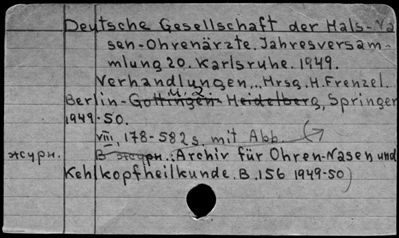 Deutsche Gesellschaft der Hals-Na
sen-Ohrenärzte. Jahresversam-
mlung 20. Karlsruhe. 1949.
Verhandlungen... Hrsg. H. Frenzel.
u. a.
Berlin-Gottingen-Heidelberg, Springer
1949-50.
VIII, 178-582 s. mit Abb.
журн. В журн.: Archiv für Ohren-Nasen und
Kehlkopfheilkunde. B. 156 1949-50)